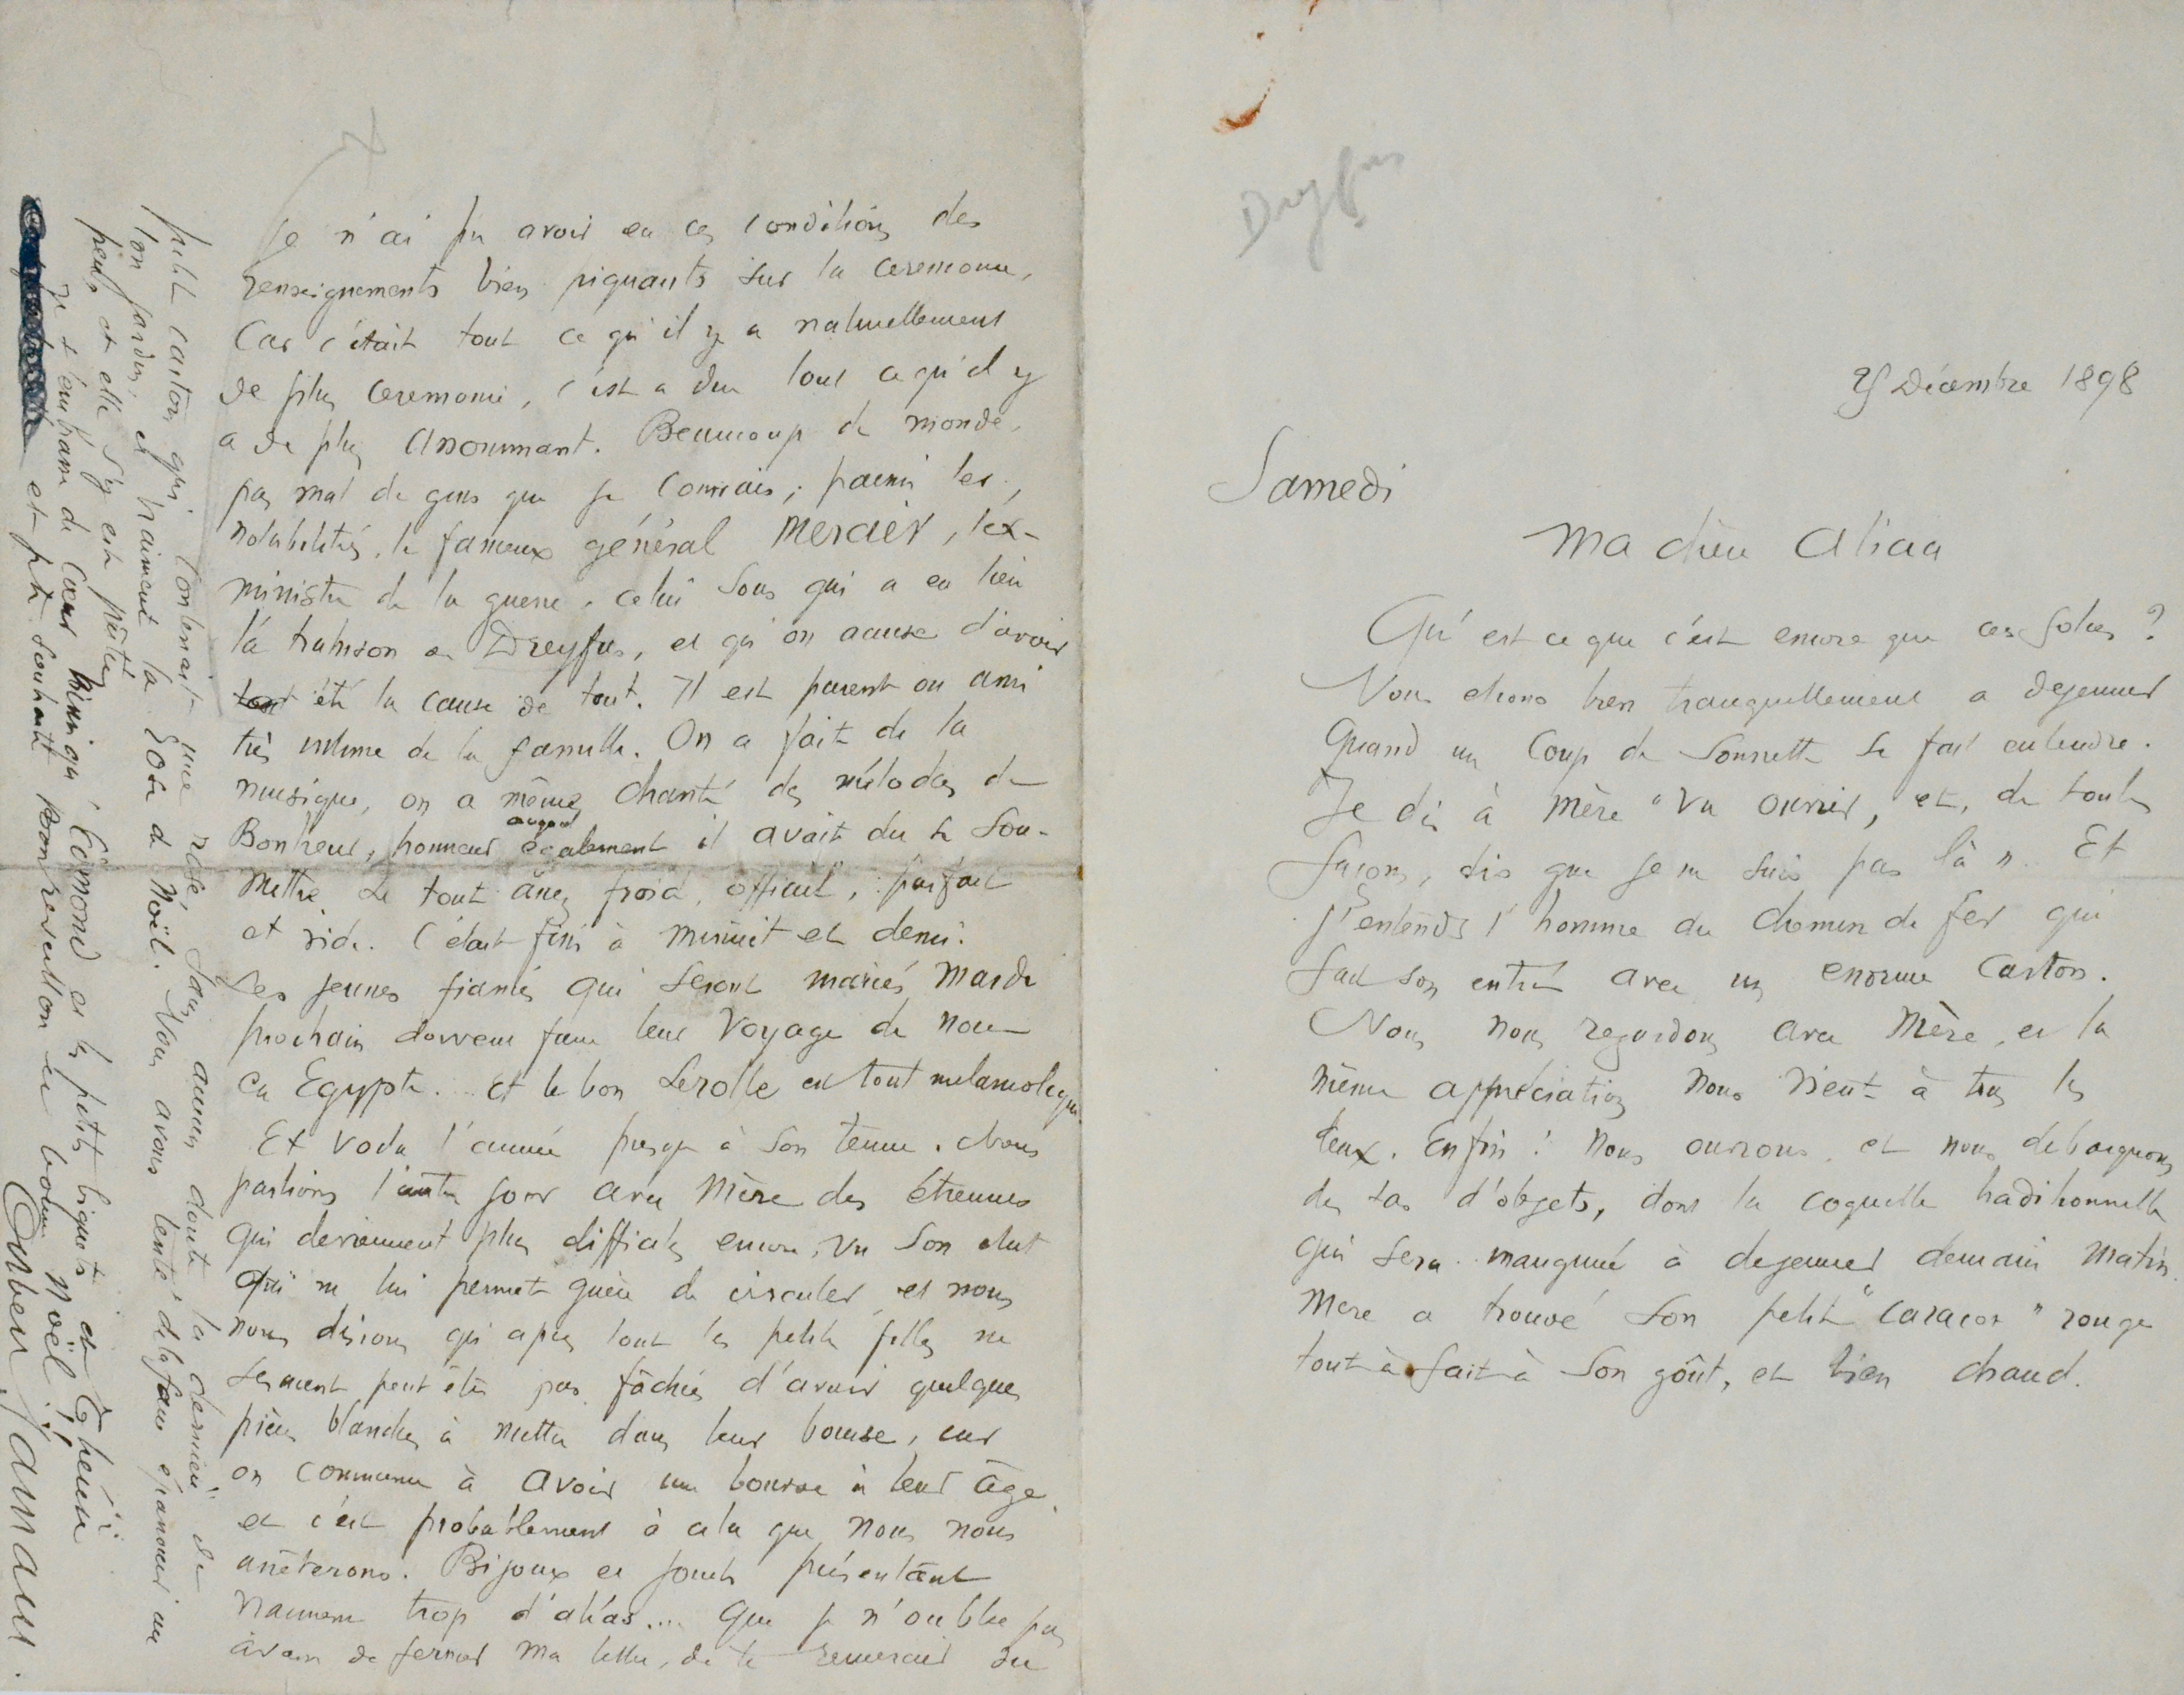 Dreyfus
25 Décembre 1898
Samedi
Ma chère Aliaa
Qu'est ce que c'est encore que ces folies ?
Nous étions bien tranquillement a dejeuner
Quand un Coup de Sonnette se fait entendre.
Je dis à Mère "Va ouvrir, et, de toutes
façons, dis que je ne suis pas là". Et
j'entends l'homme du chemin de fer qui
fait son entrée avec un enorme Carton.
Nous nous regardons avec Mère, et la
même appréciation nous vient à tous les
deux. Enfin ! Nous ouvrons, et nous deballons
des tas d'objets, dont la coquille traditionnelle
qui sera inaugurée à dejeuner demain matin.
Mère a trouvé son petit "caraco" rouge
tout à fait à son goût, et bien chaud.
Je n'ai pu avoir en ces conditions des
renseignements bien piquants sur la ceremonie,
Car c'était tout ce qu'il y a naturellement
de plus ceremonie, c'est a dire tout ce qu'il y
a de plus assommant. Beaucoup de monde,
pas mal de gens que je connais ; parmi les
notabilités, le fameux général Mercier, l'ex-
ministre de la guerre, celui sous qui a eu lieu
la trahison de Dreyfus, et qu'on accuse d'avoir
été la cause de tout. Il est parent ou ami
très intime de la famille. On a fait de la
musique, on a même chanté des mélodies de
Bonheur, honneur auquel également il avait du se sou-
mettre. Le tout assez froid, officiel, parfait
et vide. C'était fini à minuit et demi.
Les jeunes fiancés qui seront mariés Mardi
prochain doivent faire leur Voyage de noce
en Egypte. Et le bon Lerolle est tout melancolique.
Et voila l'année presque à son terme. Nous
parlions l'autre jour avec Mère des étrennes
qui deviennent plus difficiles encore, vu son etat
qui ne lui permet guère de circuler, et nous
nous disions qu'apres tout les petites filles ne
seraient peut être pas fâchées d'avoir quelques
pièces blanches à mettre dans leur bourse, car
on commence à avoir une bourse à leur âge,
et c'est probablement à cela que nous nous
arrêterons. Bijoux et jouets présentant
vraiment trop d'aléas.... Que je n'oublie pas
avant de fermer ma lettre, de te remercier du
petit carton qui contenait une rose, sans aucun doute la dernière de
ton jardin, et vraiment la rose de Noël. Nous avons tenté de la faire épanouir un
peu, et elle s'y est prêtée
Je t'embrasse de Cœur ainsi qu'Edmond et les petits biquets de Cghein
et je te souhaite bon reveillon et bonne Noël !